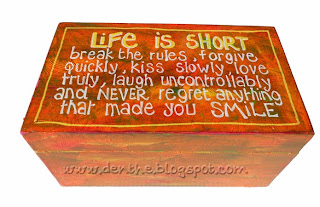 LiFE iS SHORT
break the rules, forgive
quickly, kiss slowly, love
truly, laugh uncontrollably
and NEVER regret anything
that made you SMILE
www.denthe.blogspot.com